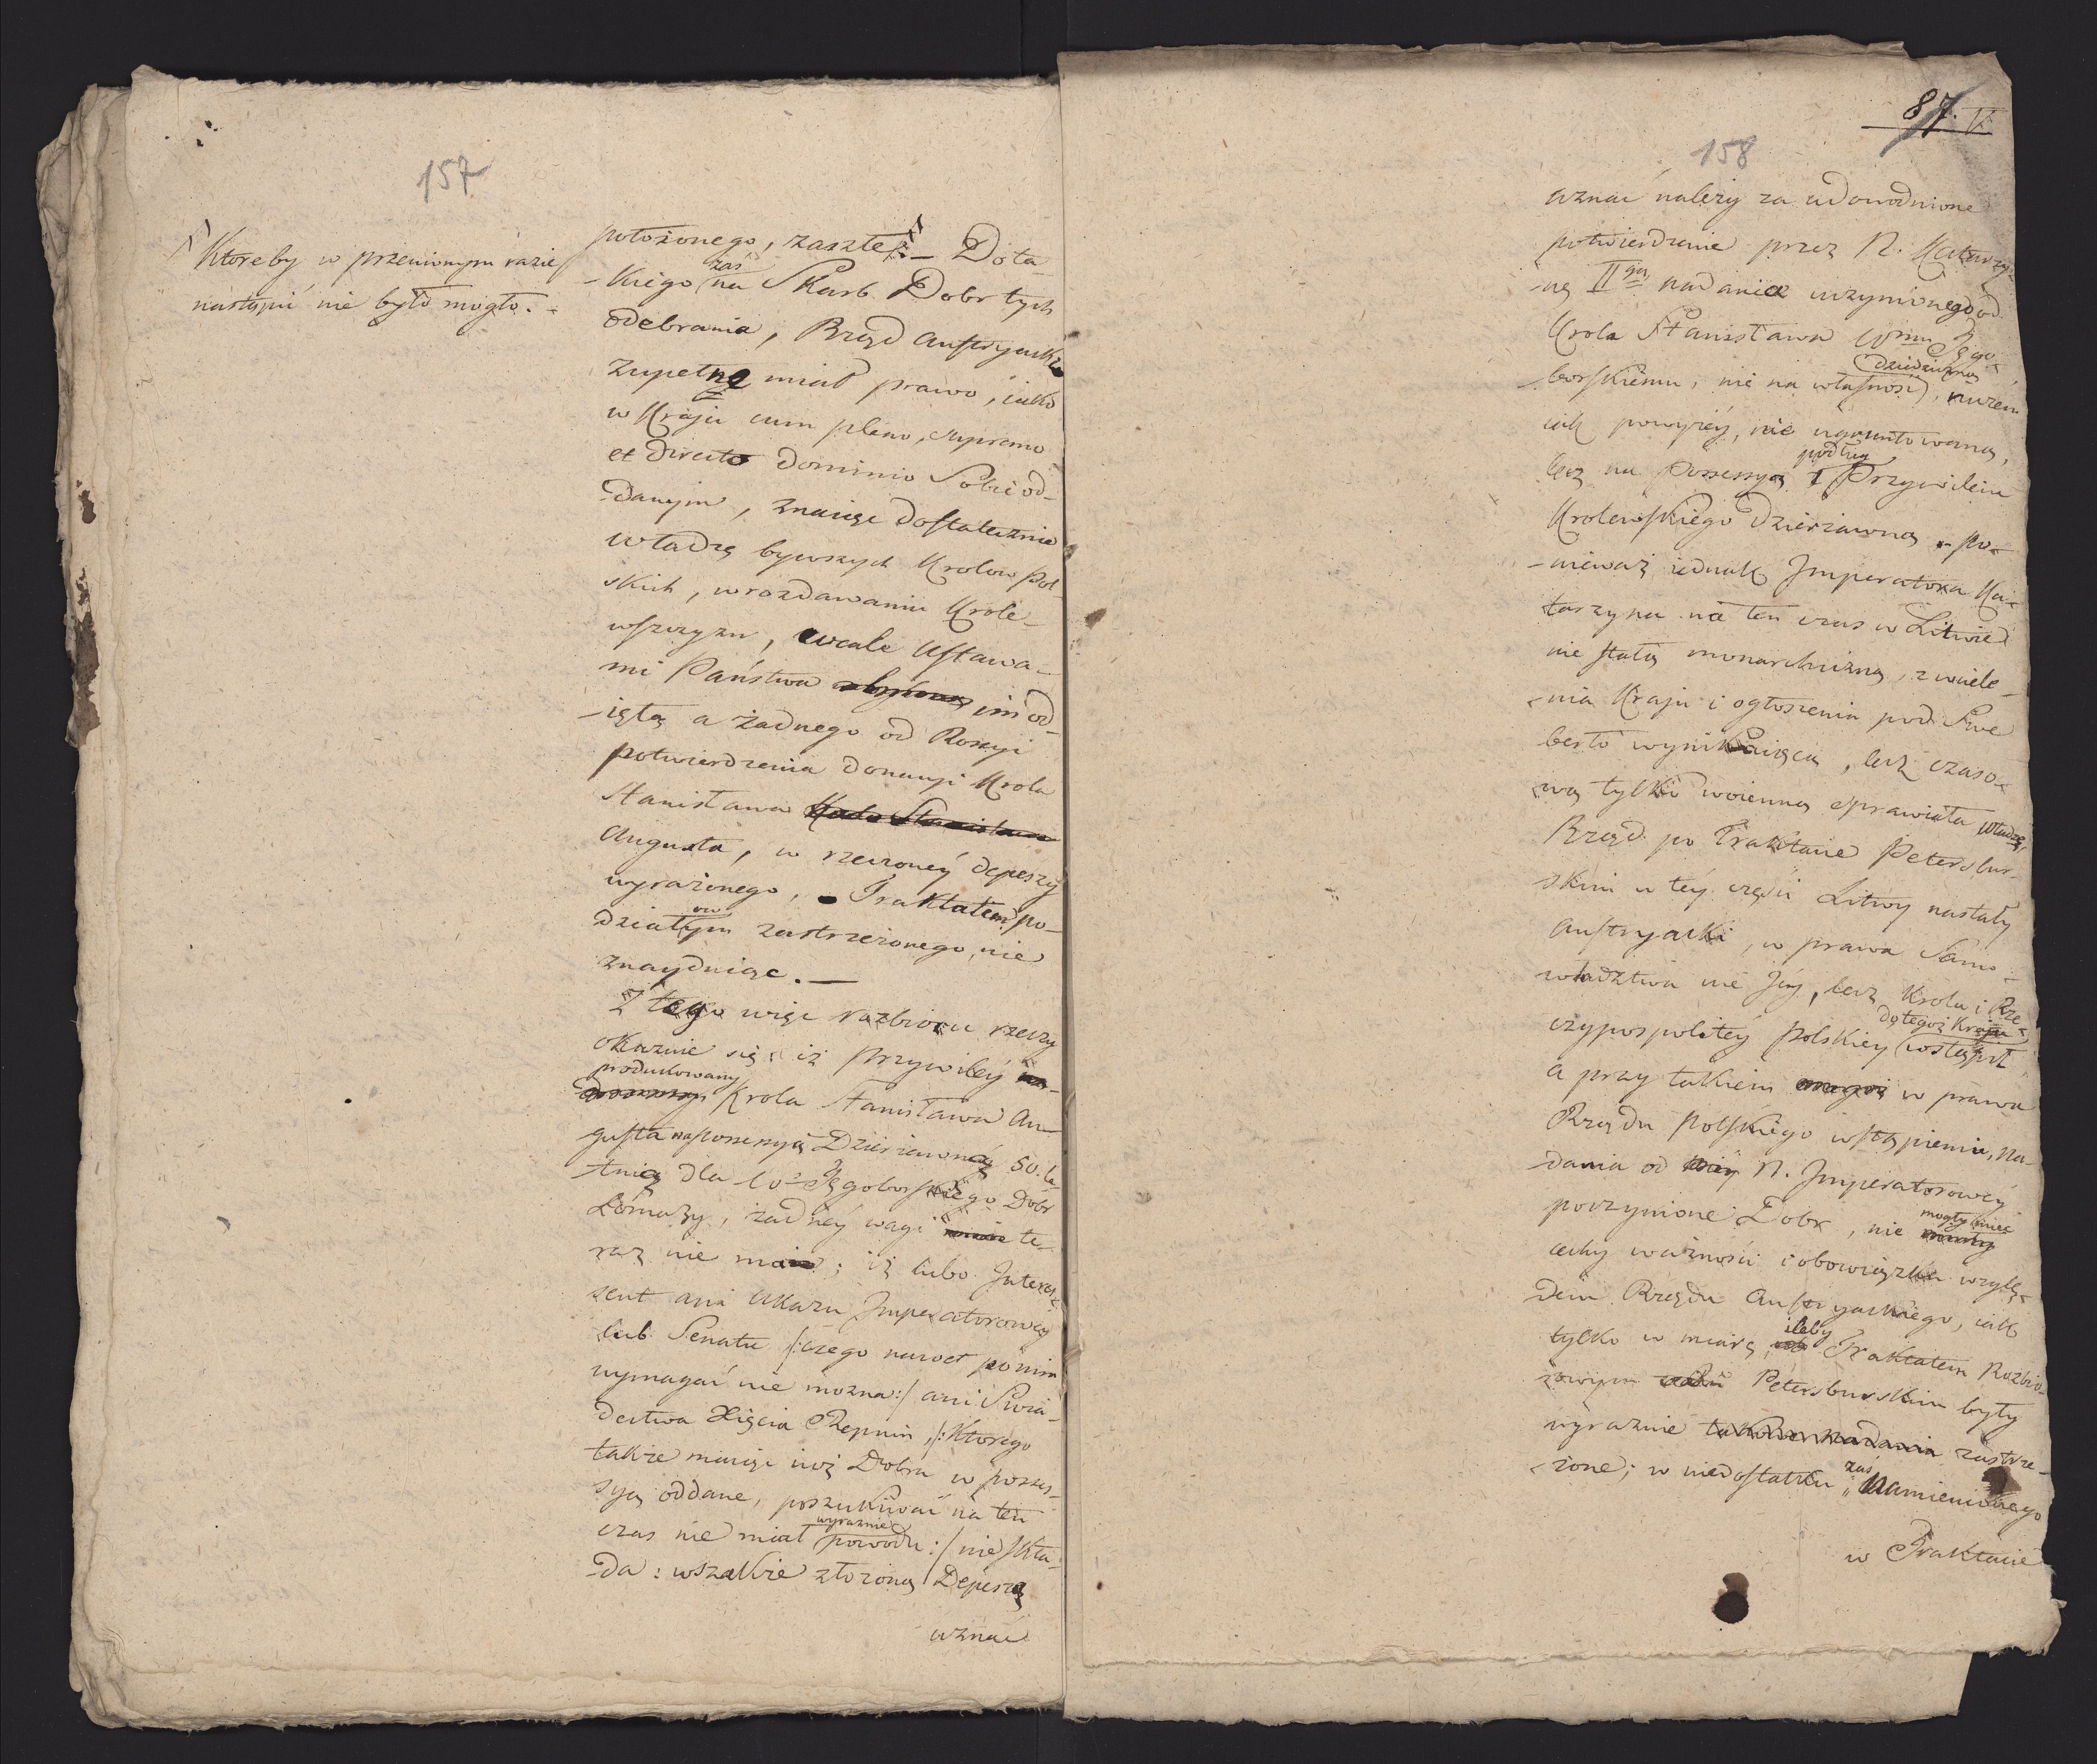 157
Ktoreby w przeciwnym razie
nastąpić nie było mogło. -
położonego, zaszłe : — Do ta-
zaś
-kiego na Skarb Dobr tych
odebrania, Rząd Austryacki
zupełne miał prawo, iako
w Kraju cum pleno, supremo
et directo Dominio Sobie od-
danym, znaiąc dostatecznie
władzę bywszych Krolow Pol-
skich, w rozdawaniu Krole-
wszczyzn, wcale Ustawa-
mi Państwa im od-
-iętą a żadnego od Rossyi
potwierdzenia donacyi Krola
Stanisława Krola Stanisława
Augusta, w rzeczonéy depeszy
wyrażonego, Traktatem po-
ow
działym zastrzeżonego, nie
znayduiąc. —
Z tego więc rozbioru rzeczy
okazuie się, iż Przywiléy
produkowany
Krola Stanisława Au-
gusta na possessyią Dzierżawną 50. le-
tnią dla Ur Zęgoborskiego Dobr
Łomazy, żadnéy wagi te-
raz nie ma; iż lubo Interes-
sent ani Ukazu Imperatorowey
lub Senatu /:czego nawet po nim
wymagać nie można:/ ani Świa-
dectwa Xięcia Repnin, /:Ktorego
także maiąc iuż Dobra w posses-
syą oddane, poszukiwać na ten
wyraznie
czas nie miał powodu:/ nie skła-
da: wszakże złożoną Depeszą
uznać
87.
158
uznać należy za udowodnione
potwierdzenie przez N. Katarzy-
-nę IIgą nadania uczynionego od
Krola Stanisława Urmu Zęgo-
dziedziczną
-borskiemu, nie na własność,
iak powyżéy, nie ugruntowaną,
podług
lecz na Possessyą Przywileiu
Krolewskiego dzierżawną - po-
-nieważ iednak Imperatorowa Ka-
tarzyna na ten czas w Litwie
nie stałą monarchiczną, z wciele-
-nia Kraju i ogłoszenia pod Swe
berło wynikaiącą, lecz czaso-
-wą tylko woienną sprawiała władzę,
Rząd po Traktacie Petersbur-
skim w téy części Litwy nastały
Austryacki, w prawa Samo-
władztwa nie Jéy, lecz Krola i Rze-
do tegoż Kraju
czypospolitéy Polskiey wstąpił
a przy takiem w prawa
Rządu Polskiego wstąpieniu, na-
dania od N. Imperatorowéy
poczynione Dobr, nie
mogły mieć
cechy ważności i obowiązku wzglę-
dem Rządu Austryackiego, iak
ileby
tylko w miarę, Traktatem Rozbio-
rowym Petersburskim były
wyraznie takowe nadania zastrze-
zaś
-żone; w niedostatku namienionego
w Traktacie